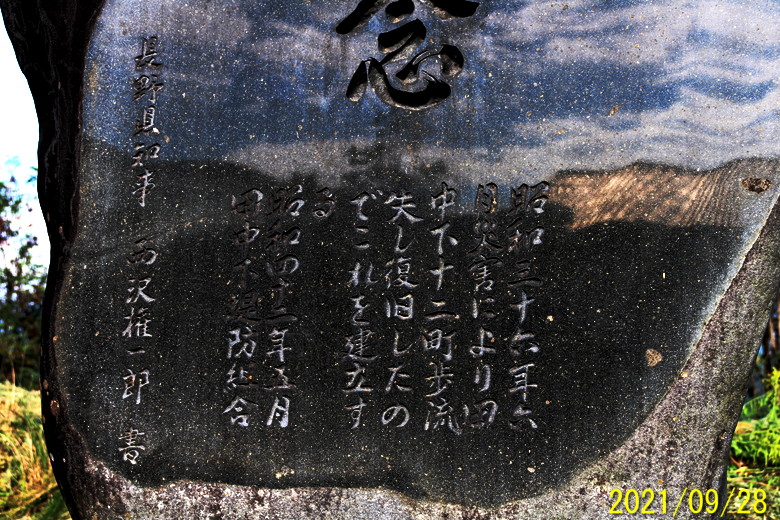 念
昭和三十六年六
月災害により田
中下十二町歩流
失し復旧したの
でこれを建立す
る
昭和四十二年五月
田中下堤防組合
長野県知事 西沢権一郎 書
2021/09/28